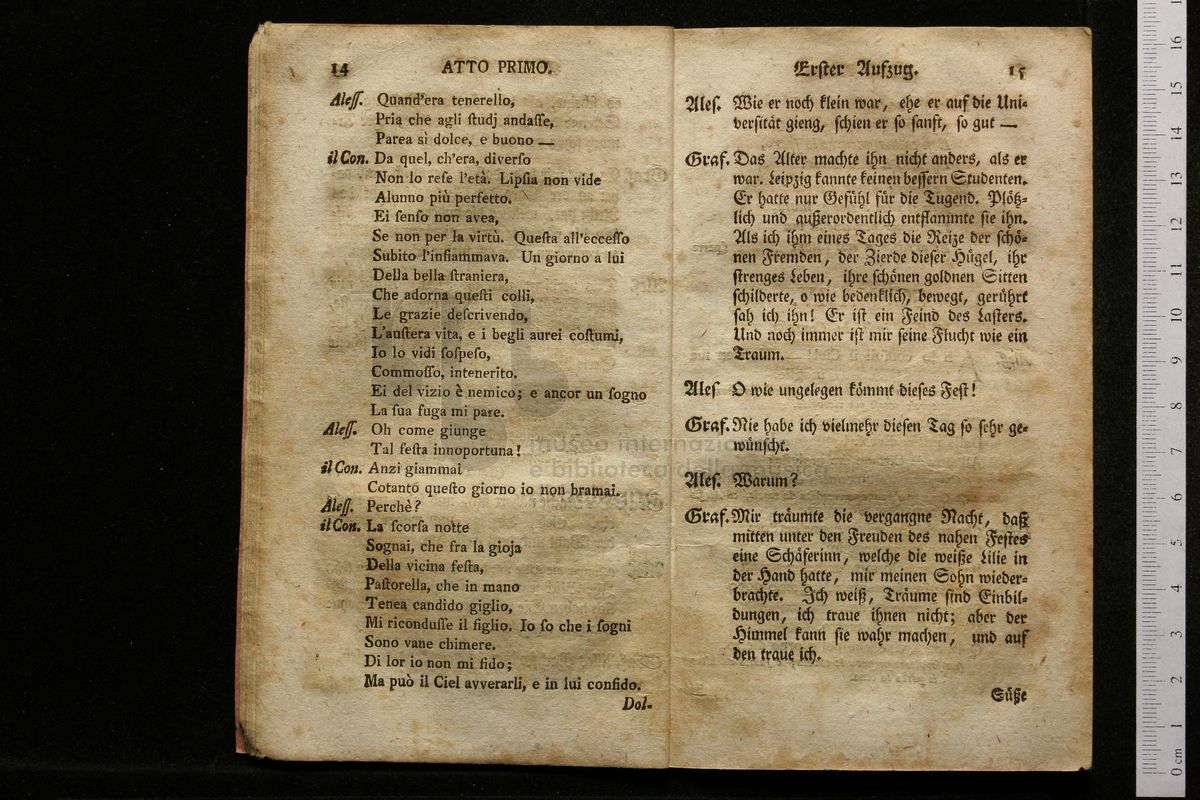 14 ATTO PRIMO.
Aleſſ. Quand'era tenerello,
Pria che agli ſtudj andaſſe,
Parea sì dolce, e buono —
il Con. Da quel, ch'era, diverſo
Non lo reſe l'età. Lipſia non vide
Alunno più perfetto.
Ei ſenſo non avea,
Se non per la virtù. Queſta all'ecceſſo
Subito l'infiammava. Un giorno a lui
Della bella ſtraniera,
Che adorna queſti colli,
Le grazie deſcrivendo,
L'auſtera vita, e i begli aurei coſtumi,
Io lo vidi ſoſpeſo,
Commoſſo, intenerito.
Ei del vizio è nemico; e ancor un ſogno
La ſua fuga mi pare.
Aleſſ. Oh come giunge
Tal feſta innoportuna!
il Con. Anzi giammai
Cotanto queſto giorno io non bramai.
Aleſſ. Perchè?
il Con. La ſcorſa notte
Sognai, che fra la gioja
Della vicina feſta,
Paſtorella, che in mano
Tenea candido giglio,
Mi riconduſſe il figlio. Io ſo che i ſogni
Sono vane chimere.
Di lor io non mi fido;
Ma può il Ciel avverarli, e in lui confido.
Dol-
Erſter Aufzug. 15
Aleſ. Wie er noch klein war, ehe er auf die Uni-
verſität gieng, ſchien er ſo ſanft, ſo gut —
Graf. Das Alter machte ihn nicht anders, als er
war. Leipzig kannte keinen beſſern Studenten.
Er hatte nur Gefühl für die Tugend. Plötz-
lich und außerordentlich entflammte ſie ihn.
Als ich ihm eines Tages die Reize der ſchö-
nen Fremden, der Zierde dieſer Hügel, ihr
ſtrenges Leben, ihre ſchönen goldnen Sitten
ſchilderte, o wie bedenklich, bewegt, gerührt
ſah ich ihn! Er iſt ein Feind des Laſters.
Und noch immer iſt mir ſeine Flucht wie ein
Traum.
Aleſ O wie ungelegen kömmt dieſes Feſt!
Graf. Nie habe ich vielmehr dieſen Tag ſo ſehr ge-
wünſcht.
Aleſ. Warum?
Graf. Mir träumte die vergangne Nacht, daß
mitten unter den Freuden des nahen Feſtes
eine Schäferinn, welche die weiße Lilie in
der Hand hatte, mir meinen Sohn wieder-
brachte. Ich weiß, Träume ſind Einbil-
dungen, ich traue ihnen nicht; aber der
Himmel kann ſie wahr machen, und auf
den traue ich.
Süße
museo internazionale
e biblioteca della musica
0 cm 1 2 3 4 5 6 7 8 9 10 11 12 13 14 15 16